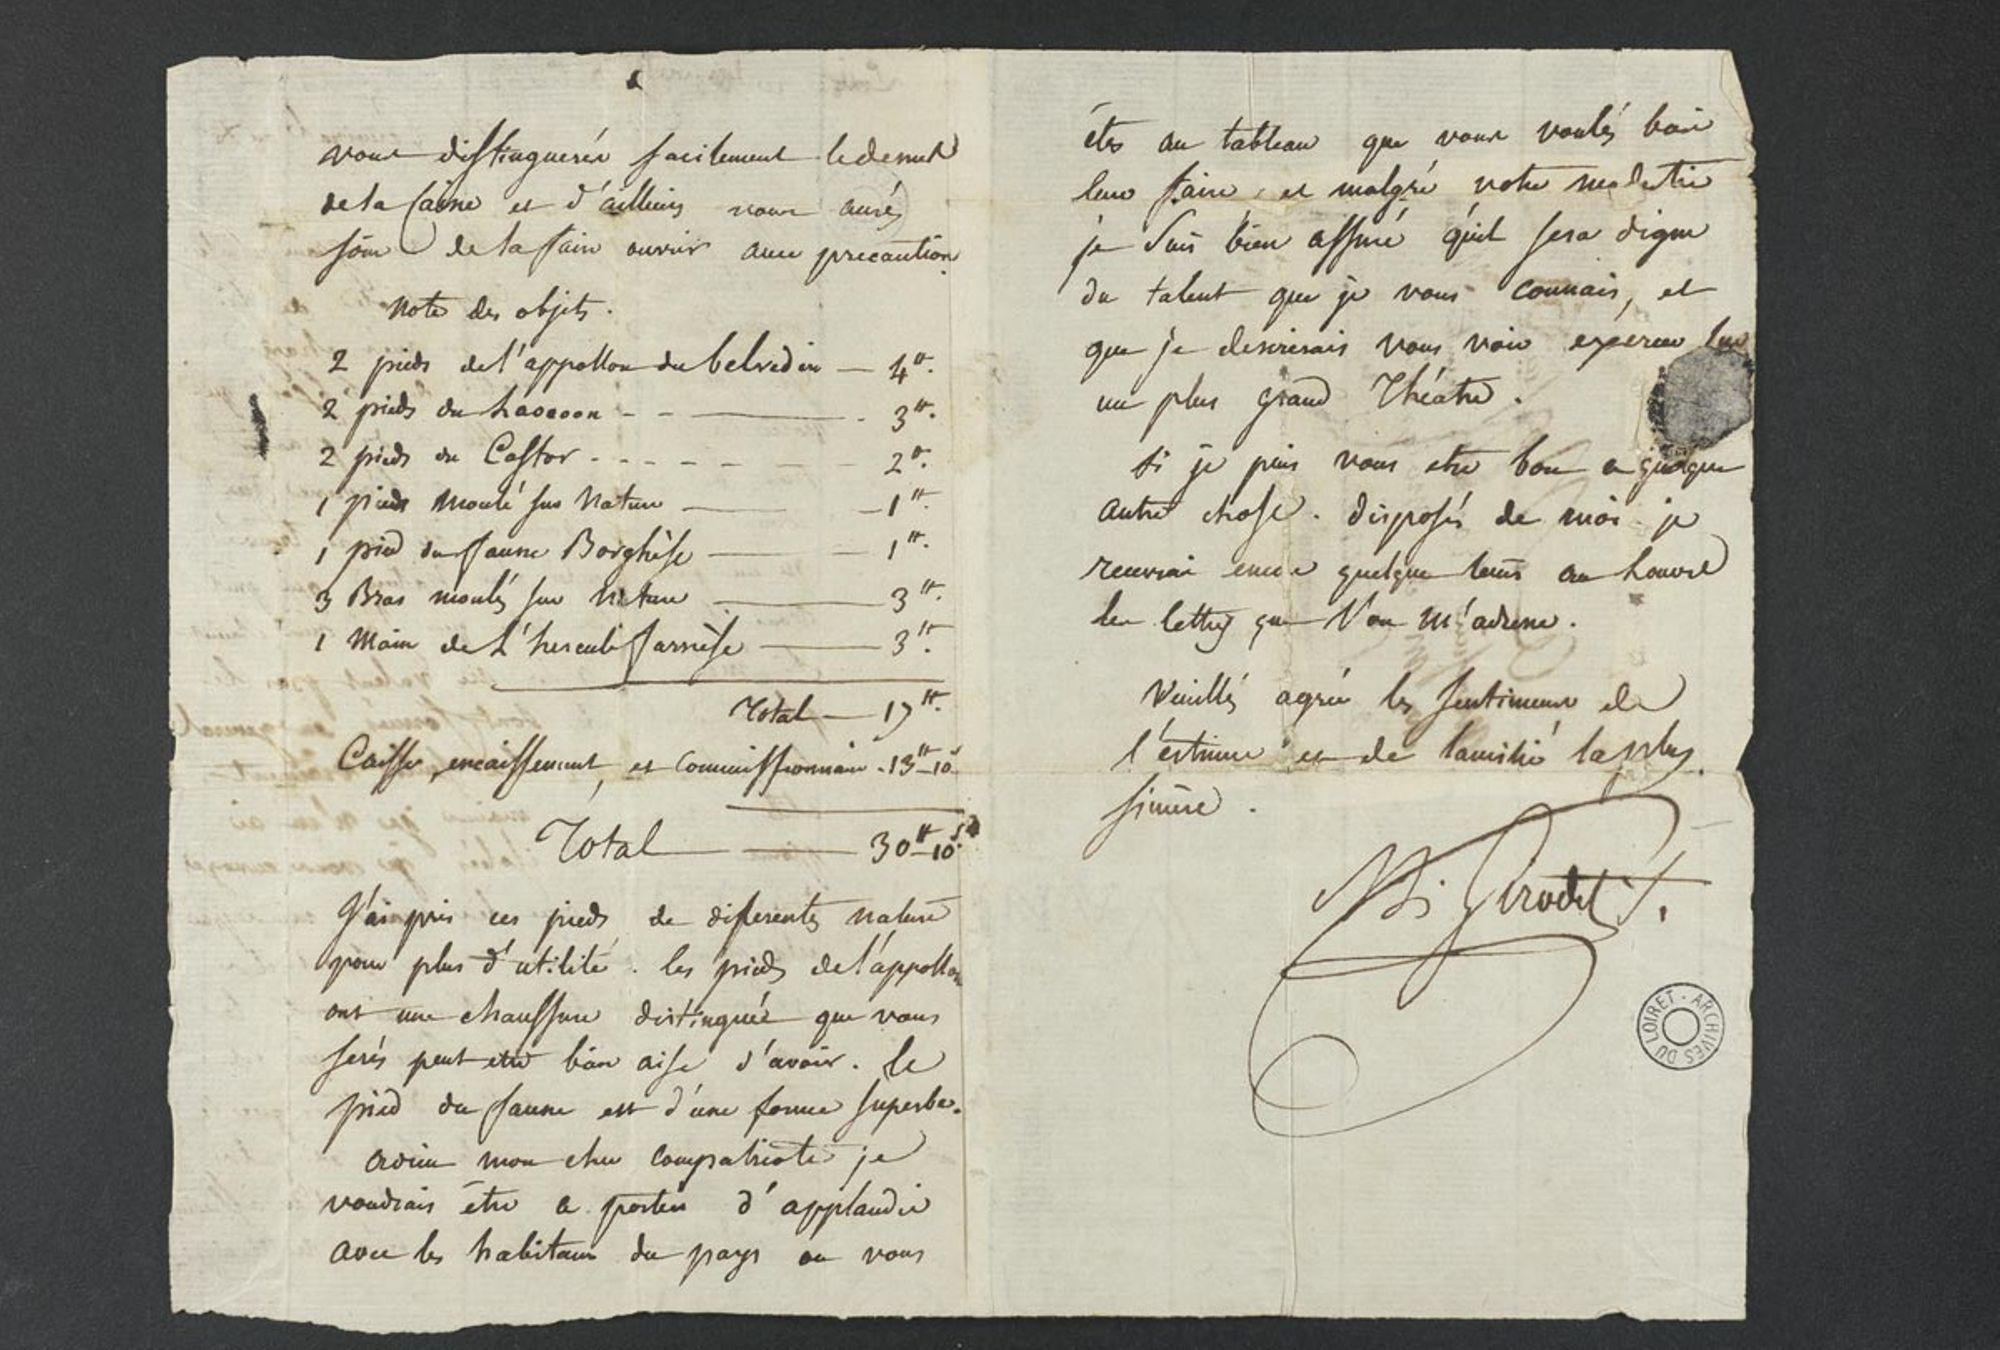 vous distinguerés facilement le dessus
de la Caisse et d'ailleurs vous aurés
soin de la faire ouvrir avec precaution.
Note des objets.
2 pieds de l'appollon du belvedere — 4tt.
2 pieds du Laocoon - - — 3tt.
2 pieds du Castor - - - - 2tt.
1 pieds moulé sur Nature — 1tt.
1 pied du faune Borghèse — 1tt.
3 Bras moulés sur Nature — 3tt.
1 Main de L'hercule farnèse — 3tt.
Total — 17tt.
Caisse, encaissement, et commissionnaire - 13tt-10s
Total — 30tt-10s
J'ai pris ces pieds de differentes nature
pour plus d'utilité. les pieds de l'appollon
ont une chaussure distinguée que vous
serés peut etre bien aise d'avoir. le
pied du faune est d'une forme superbe.
adieu mon cher compatriote je
voudrais être a portée d'applaudir
avec les habitans du pays ou vous
étes au tableau que vous voulés bien
leur faire, et malgré votre modestie
je suis bien assuré qu'il sera digne
du talent que je vous connais, et
que je desirerais vous voir exercer sur
un plus grand Théatre.
si je puis vous etre bon a quelque
autre chose. disposés de moi. je
recevrai encore quelque tems au Louvre
les lettres que l'on m'adresse.
Veuillés agréer les sentimens de
l'estime et de l'amitié la plus
sincere.
Girodet
ARCHIVES DU LOIRET